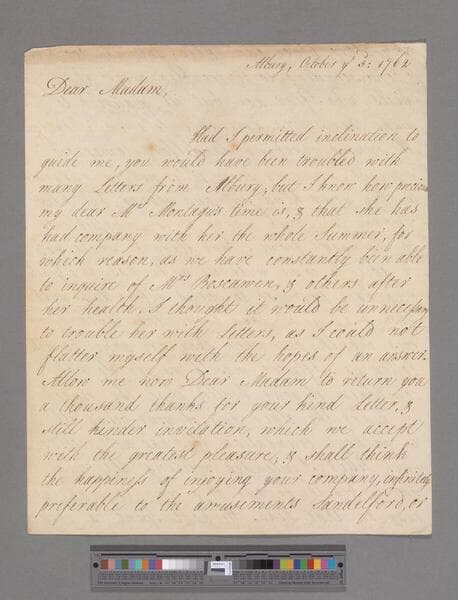 Albury, October ye 3: 1762
Dear Madam,
Had I permitted inclination to
guide me, you would have been troubled with
many Letters from Albury, but I know how precious
my dear Mrs Montagu's time is, & that she has
had company with her the whole Summer, for
which reason, as we have constantly been able
to inquire of Mrs Boscawen, & others after
her health, I thought it would be unnecessary
to trouble her with Letters, as I could not
flatter myself with the hopes of an answer.
Allow me now Dear Madam to return you
a thousand thanks for your kind Letter, &
still kinder invitation, which we accept
with the greatest pleasure, & shall think
the happiness of injoying your company, infinitely
preferable to the amusements Sandelford, or